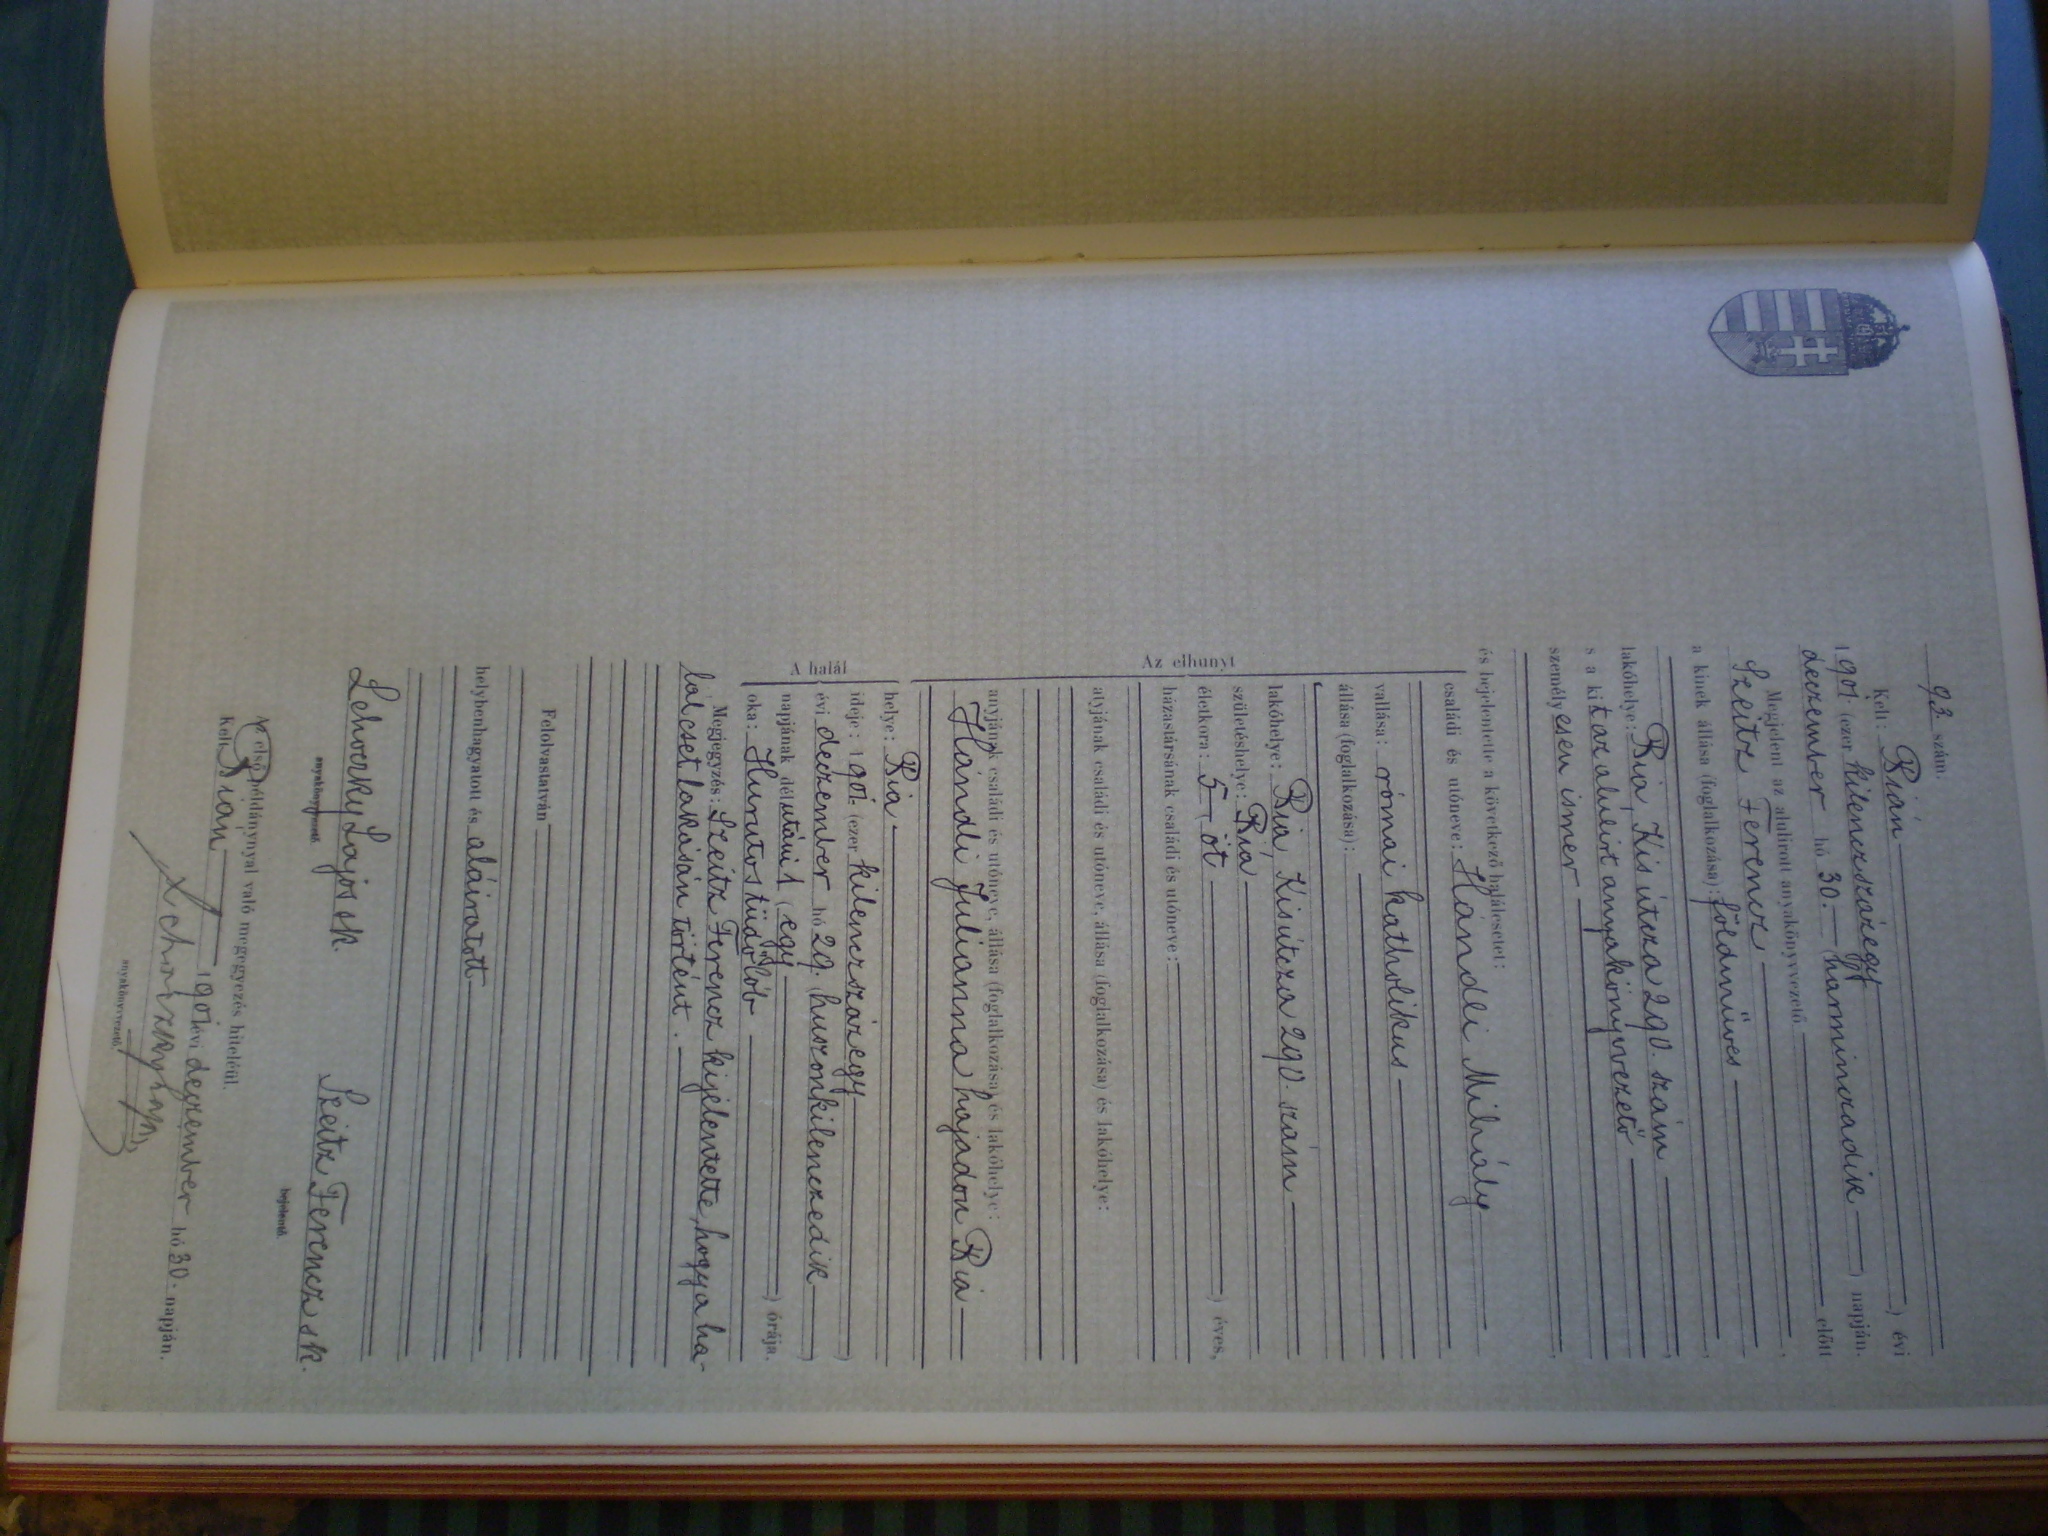 93. szám.
Kelt: Bián 1901. (ezer kilenczszázegy) évi
deczember hó 30. (harminczadik) napján.
Megjelent az alulirott anyakönyvvezető előtt
Szeitz Ferencz,
a kinek állása (foglalkozása): földmüves,
lakóhelye: Bia, Kis útcza 290. szám,
s a kit az alulirt anyakönyvvezető
személyesen ismer,
és bejelentette a következő halálesetet:
Az elhunyt
családi és utóneve: Hándli Mihály
vallása: római katholikus
állása (foglalkozása):
lakóhelye: Bia, Kisútcza 290. szám
születéshelye: Bia
életkora: 5 (öt) éves,
házastársának családi és utóneve:
atyjának családi és utóneve, állása (foglalkozása) és lakóhelye:
anyjának családi és utóneve, állása (foglalkozása) és lakóhelye:
Hándli Julianna hajadon Bia
A halál
helye: Bia
ideje: 1901. (ezer kilenczszázegy)
évi deczember hó 29. (huszonkilenczedik)
napjának délutáni 1 (egy) órája,
oka: Hurutos tüdőlob
Megjegyzés: Szeitz Ferencz kijelentette, hogy a ha-
láleset lakásán történt.
Felolvastatván
helybenhagyatott és aláiratott
Lehoczky Lajos sk.
anyakönyvvezető.
Szeitz Ferencz sk.
bejelentő.
Az első példánynyal való megegyezés hiteléül.
Kelt Bián 1901 évi deczember hó 30. napján.
anyakönyvvezető.